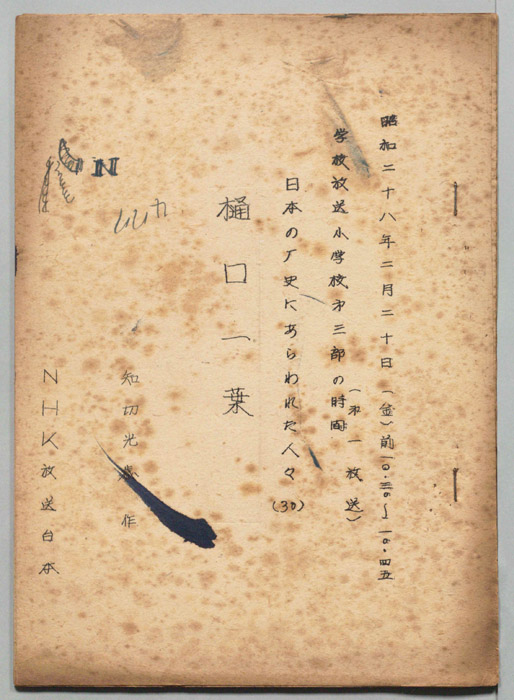 昭和二十八年二月二十日（金）前一〇・三〇～一〇・四五
（第一放送）
学校放送小学校第三部の時間
日本の歴史にあらわれた人々（30）
樋口一葉
知切光 作
NHK放送台本
N